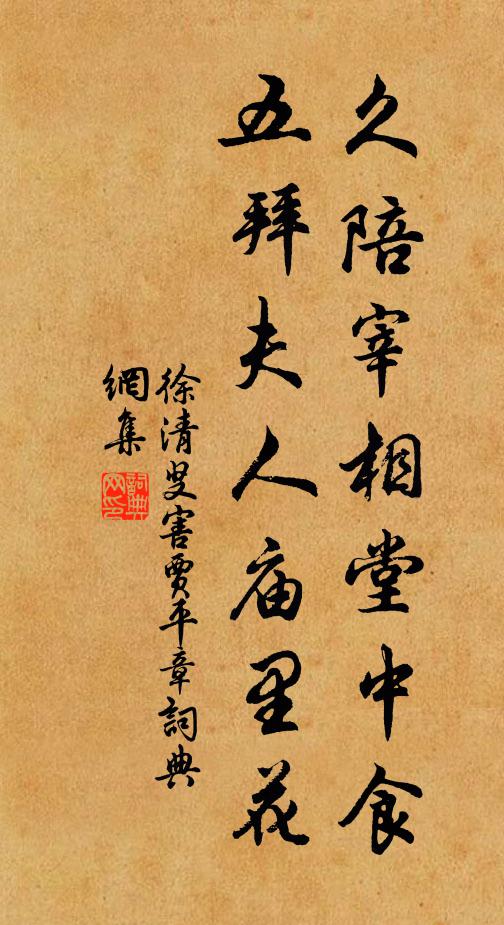 久陪宰相堂中食
五拜夫人庙里花
徐清叟害賈平章詞典
網集
詞典
网印